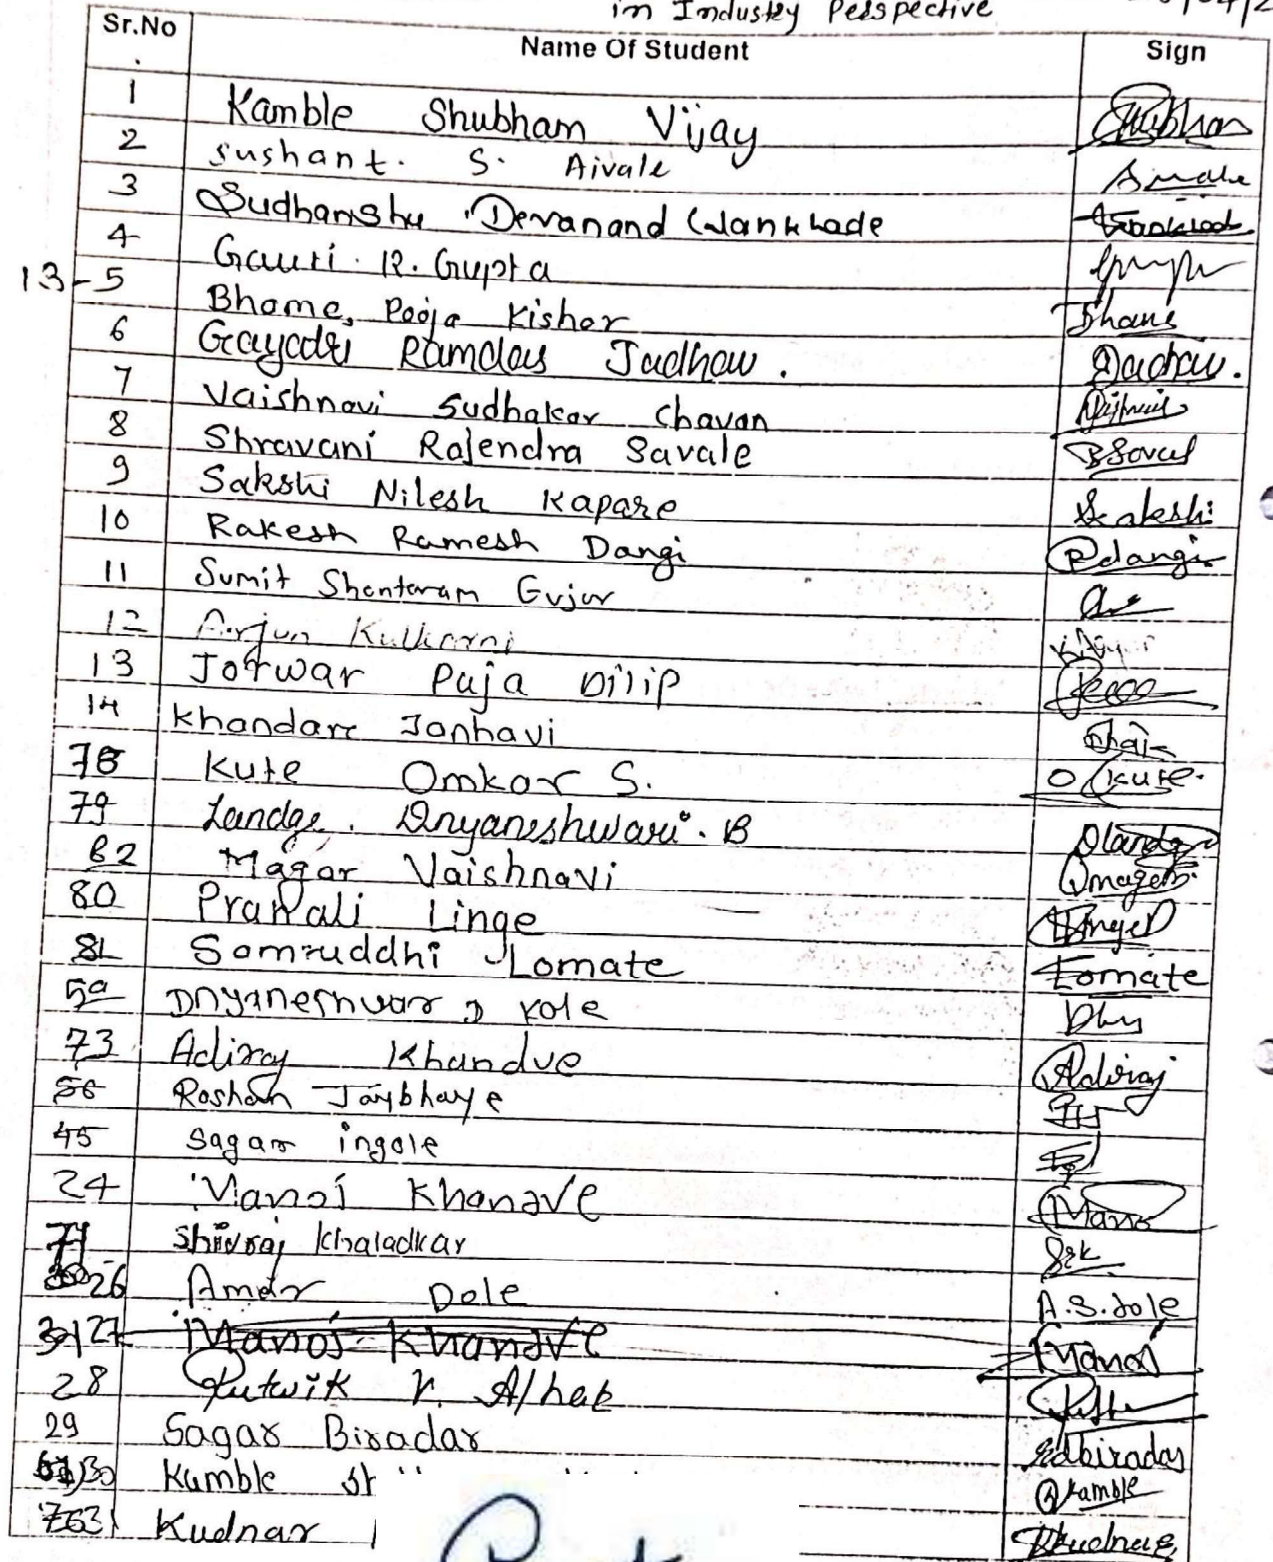 in Industry Perspective
Sr.No. Name Of Student Sign
1 Kamble Shubham Vijay
2 Sushant. S. Aivale
3 Sudhanshu Devanand Wankhade
4 Gauri. R. Gupta
13-5 Bhame, Pooja Kishor
6 Gayatri Ramdas Jadhav.
7 Vaishnavi Sudhakar Chavan
8 Shravani Rajendra Savale
9 Sakshi Nilesh Kapare Sakshi
10 Rakesh Ramesh Dangi Rdangi
11 Sumit Shantaram Gujar
12 Arjun Kulkarni
13 Jotwar Puja Dilip
14 Khandare Janhavi
78 Kute Omkar S. O Kute.
79 Landge. Dnyaneshwari. B Dlandge
82 Magar Vaishnavi
80 Pranali Linge
81 Samruddhi Lomate Lomate
59 Dnyaneshwar D Kole
73 Adiraj Khandve Adiraj
56 Roshan Jaybhaye
45 Sagar ingole
24 Manoj Khanave Mano
71 Shivraj Khaladkar SRK
26 Amar Dole A.S.Dole
27 Manoj Khanave Manoj
28 Rutwik V. Alhat
29 Sagar Biradar Sdbiradar
30 Kamble Kamble
Kudnar Kudnar